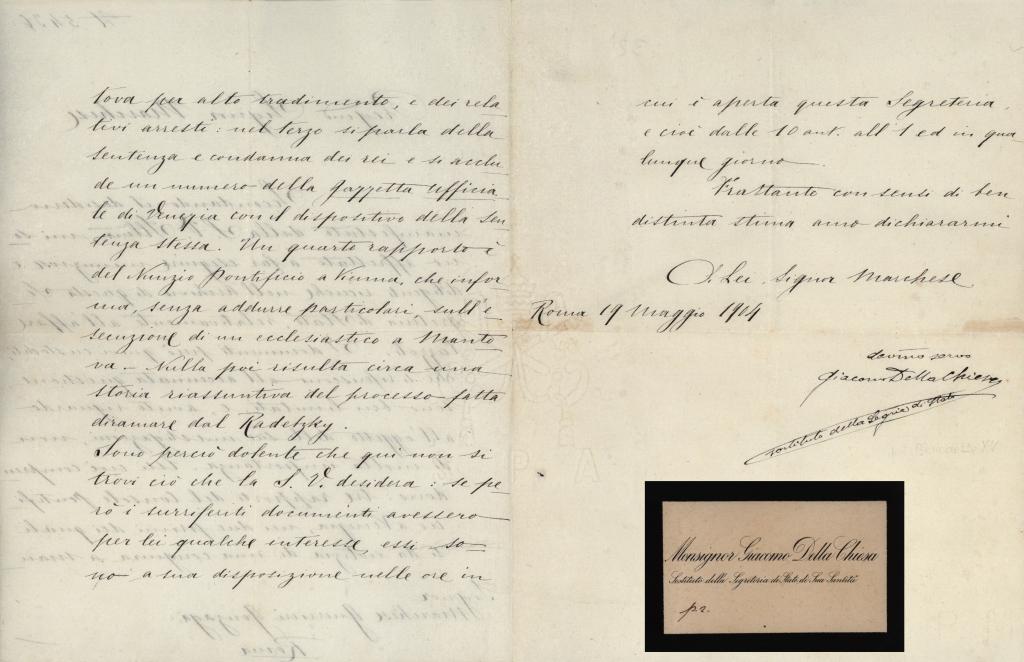 tova per alto tradimento, e dei rela
tivi arresti: nel terzo si parla della
sentenza e condanna dei rei e si acclu
de un numero della Gazzetta Ufficia
le di Venezia con il dispositivo della sen
tenza stessa. Un quarto rapporto è
del Nunzio Pontificio a Vienna, che infor
ma, senza addurre particolari, sull'e
secuzione di un ecclesiastico a Manto
va — Nulla poi risulta circa una
storia riassuntiva del processo fatta
diramare dal Radetzky.
Sono perciò dolente che qui non si
trovi ciò che la S. V. desidera: se pe
rò i surriferiti documenti avessero
per lei qualche interesse, essi so-
no a sua disposizione nelle ore in
cui è aperta questa Segreteria,
e cioè dalle 10 ant. all'1 ed in qua
lunque giorno.
Frattanto con sensi di ben
distinta stima amo dichiararmi
Di Lei, Signor Marchese
Roma 19 Maggio 1904
devmo servo
Giacomo Della Chiesa
sostituto della Segria di Stato
Monsignor Giacomo Della Chiesa
Sostituto della Segreteria di Stato di Sua Santità
pr.